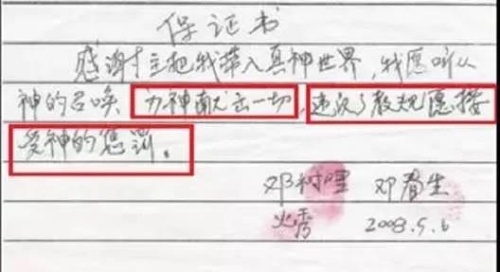 保证书
感谢主把我带入真神世界,我愿听从
神的召唤 为神献出一切,违汉了教规愿接
受神的惩罚。
邓树理 邓春生
火秀 2008.5.6